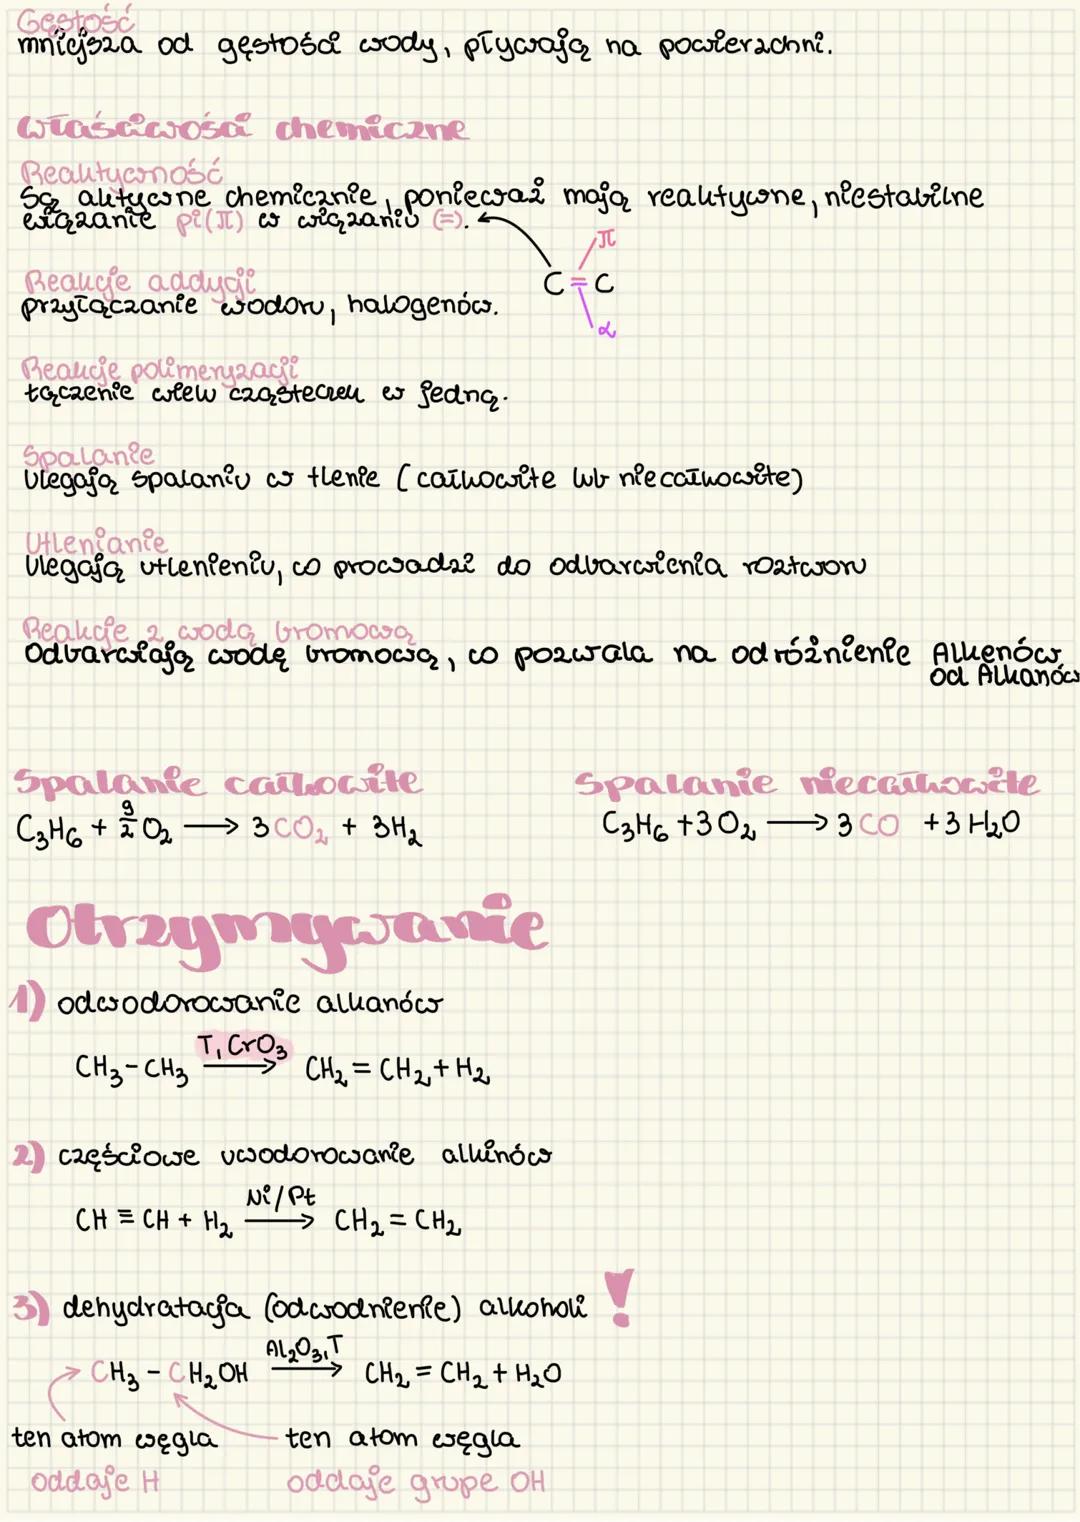 Gęstość
mniejsza od gęstości wody, pływają na powierzchni.
właściwości chemiczne
Reaktywność
Są aktywne chemicznie, ponieważ mają reaktywne, niestabilne
wiązanie pi(π) w wiązaniu (=).
π
C = C
α
Reakcje addycji
przyłączanie wodoru, halogenów.
Reakcje polimeryzacji
łączenie wielu cząsteczek w jedną.
Spalanie
Ulegają spalaniu w tlenie (całkowite lub niecałkowite)
Utlenianie
Ulegają utlenieniu, co prowadzi do odbarwienia roztworu
Reakcje z wodą bromową
Odbarwiają wodę bromową, co pozwala na odróżnienie Alkenów
od Alkanów
Spalanie całkowite
C₃H₆ + 9/2 O₂ → 3CO₂ + 3H₂
Spalanie niecałkowite
C₃H₆ + 3O₂ → 3CO + 3H₂O
Otrzymywanie
1) odwodorowanie alkanów
T, CrO₃
CH₃ - CH₃ → CH₂ = CH₂ + H₂
2) częściowe uwodorowanie alkinów
Ni/Pt
CH ≡ CH + H₂ → CH₂ = CH₂
3) dehydratacja (odwodnienie) alkoholi !
Al₂O₃, T
CH₃ - CH₂OH → CH₂ = CH₂ + H₂O
ten atom węgla
oddaje H
ten atom węgla
oddaje grupe OH